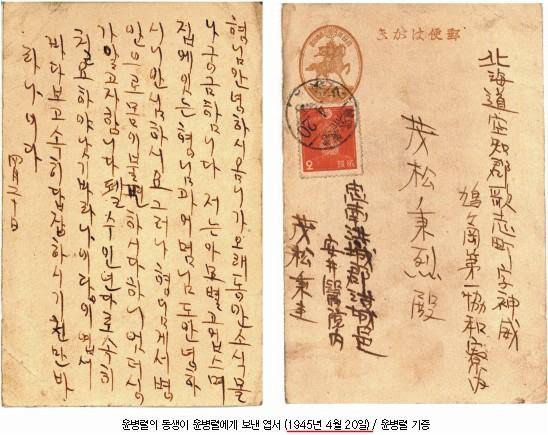 형님안녕하시옴니가오래동안소식몰
나궁금하빈니다 저는아모별고업스며
집에잇는형님과 도안녕하
시니안심하시요 그러나형임게서병
안으로몸이불편하시다하니엇더신
가알고자합니다 될수 속히
치료하야낫기바라나이다
바다보고속히답 하시기천만바
라나이다
四月二十日
郵便はがき
北海道空知郡歌志町字神威
鳩ヶ岡第一協和寮内
茂松秉烈殿
忠南洪城郡洪城邑
安井醫院内
茂松秉圭
윤병렬의 동생이 윤병렬에게 보낸 엽서 (1945년 4월 20일) / 윤병렬 기증